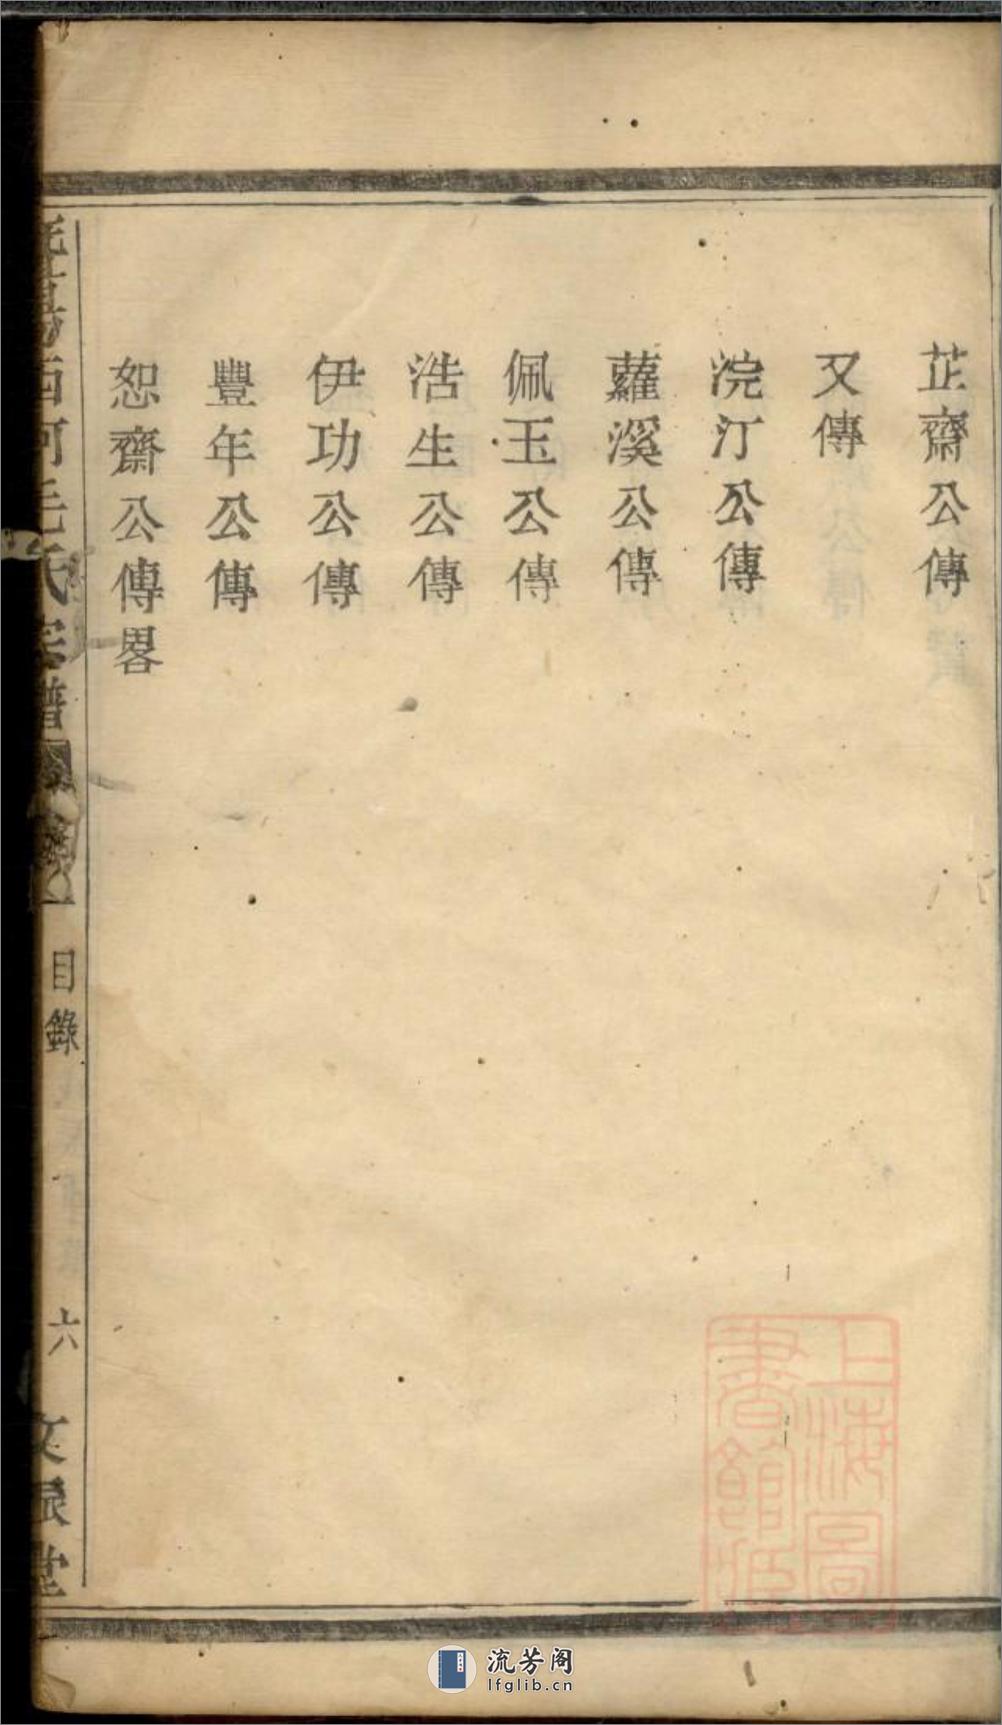 芷齋公傳
又傳
浣汀公傳
蘿溪公傳
佩玉公傳
浩生公傳
伊功公傳
豐年公傳
恕齋公傳畧
西河毛氏宗譜
目錄
六
文宸堂
上海圖書館藏
流芳阁
lfglib.cn